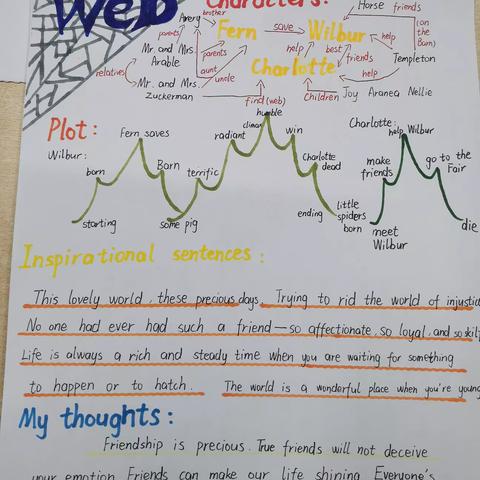 Web
Characters:
Horse friends
Avery brother
Fern save Wilbur
(on the Barn)
parents
Mr. and Mrs. Arable
parents
help best friends
help
Templeton
relatives
aunt uncle
Charlotte
help
Mr. and Mrs. Zuckerman
find (web)
children Joy Aranea Nellie
Plot:
Wilbur:
starting
born
Fern saves
Barn
some pig
terrific
radiant
climax
humble
win
Charlotte dead
ending
little spiders born
Charlotte:
meet Wilbur
make friends
help Wilbur
go to the Fair
die
Inspirational sentences:
This lovely world, these precious days. Trying to rid the world of
No one had ever had such a friend—so affectionate, so loyal, and so
Life is always a rich and steady time when you are waiting for something
to happen or to hatch. The world is a wonderful place when you're young
My thoughts:
Friendship is precious. True friends will not deceive
your emotion. Friends can make our life shining. Everyone's